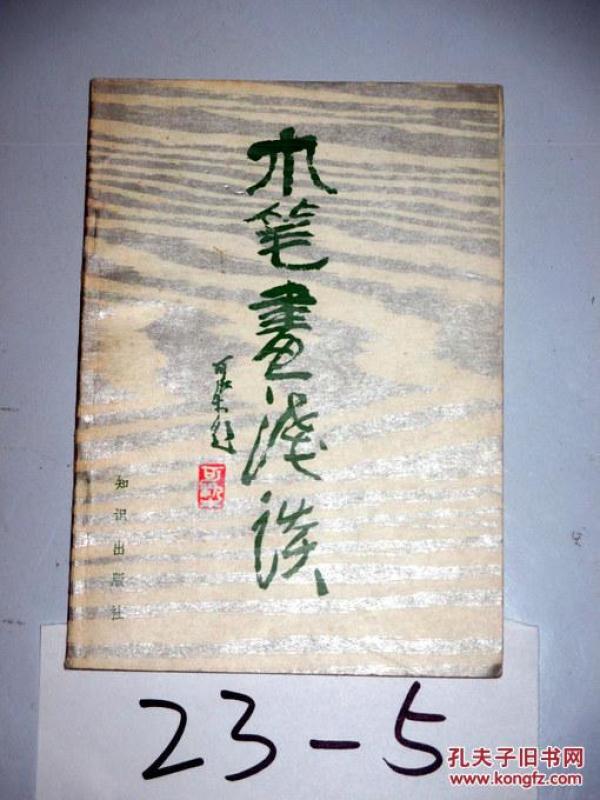 木笔畫浅谈
知识出版社
23-5
孔夫子旧书网
www.kongfz.com